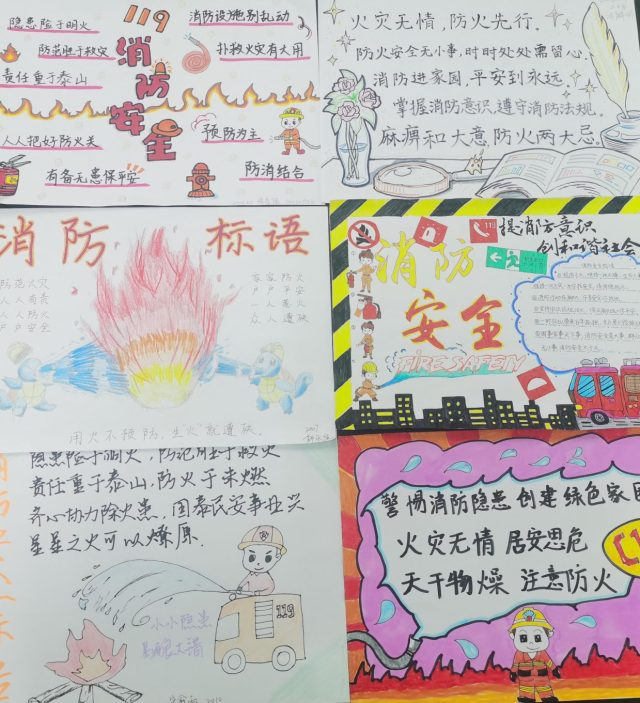 119
消防安全
隐患险于明火
防范胜于救灾
责任重于泰山
消防设施别乱动
扑救火灾有大用
人人把好防火关
预防为主
有备无患保平安
防消结合
火灾无情，防火先行.
防火安全无小事，时时处处需留心.
消防进家园，平安到永远.
掌握消防意识，遵守消防法规.
麻痹和大意防火两大忌.
消防 标语
防范火灾
人人有责
人人防火
户户安全
家家防火
户户平安
一人失火
众人遭殃
用火不预防，生火就遭殃.
提消防意识
创和谐社会
119
消防
安全
FIRE SAFETY
隐患险于明火，防范胜于救灾
责任重于泰山，防火于未燃
齐心协力除火患，国泰民安事业兴
星星之火可以燎原.
119
小小隐患
警惕消防隐患 创建绿色家园
火灾无情 居安思危
天干物燥 注意防火